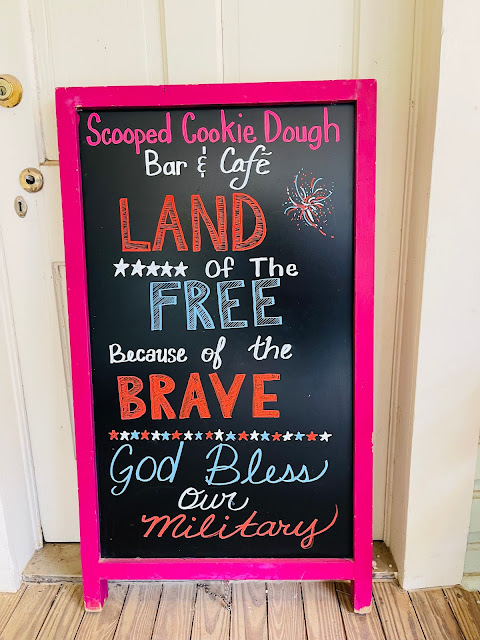 Scooped Cookie Dough
Bar & Café
LAND
★★★★★ Of The
FREE
Because of the
BRAVE
God Bless
our
Military